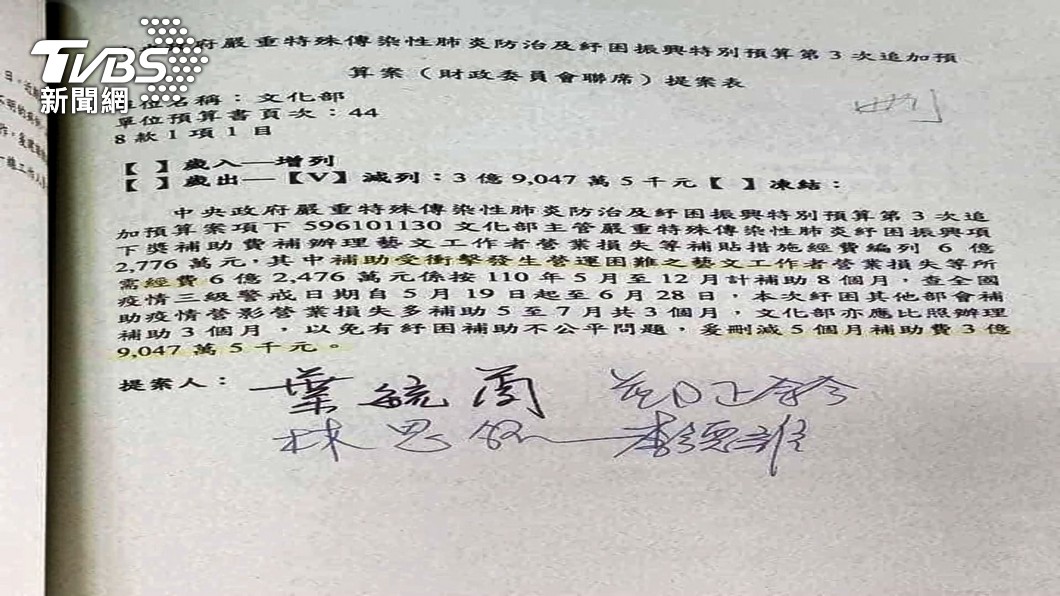 TVBS
新聞網
府嚴重特殊傳染性肺炎防治及紓困振興特別預算第3次追加預
算案（財政委員會聯席）提案表
刪
單位名稱：文化部
單位預算書頁次：44
8款1項1目
【 】歲入—增列
【 】歲出—【V】減列：3億9,047萬5千元【 】凍結：
中央政府嚴重特殊傳染性肺炎防治及紓困振興特別預算第3次追
加預算案項下596101130文化部主管嚴重特殊傳染性肺炎紓困振興項
下獎補助費補辦理藝文工作者營業損失等補貼措施經費編列6億
2,776萬元，其中補助受衝擊發生營運困難之藝文工作者營業損失等所
需經費6億2,476萬元係按110年5月至12月計補助8個月，查全國
疫情三級警戒日期自5月19日起至6月28日，本次紓困其他部會補
助疫情營影營業損失多補助5至7月共3個月，文化部亦應比照辦理
補助3個月，以免有紓困補助不公平問題，爰刪減5個月補助費3億
9,047萬5千元。
提案人：葉毓蘭 鄭正鈐
林思銘 李德維